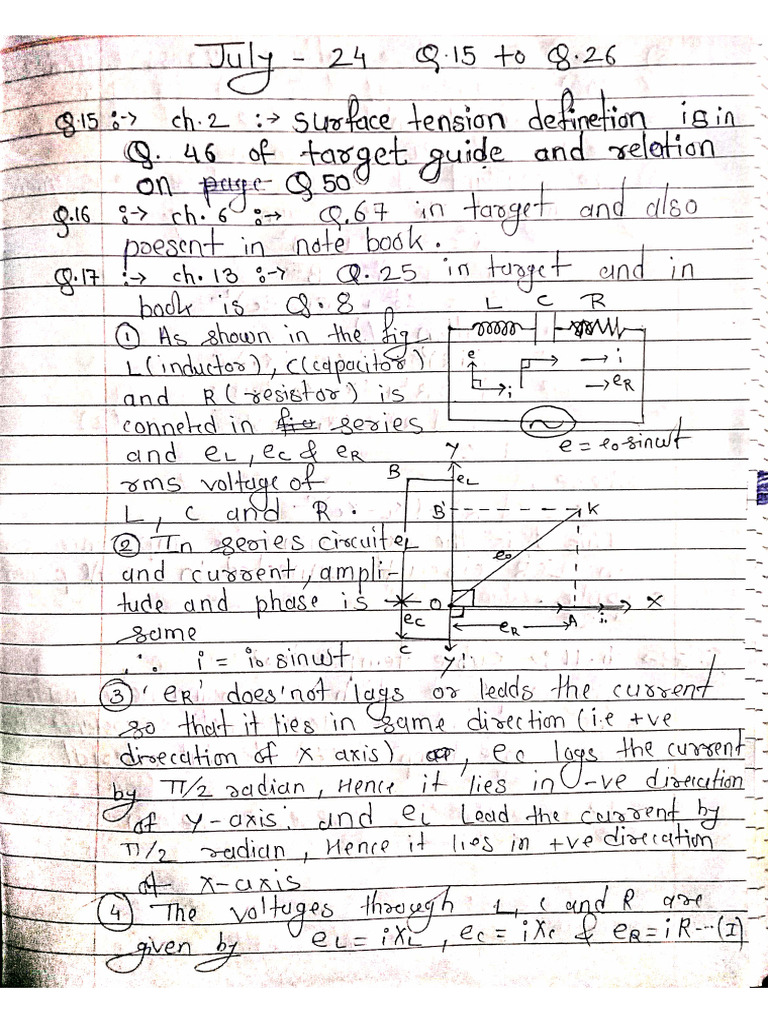 July - 24 Q.15 to Q.26
Q.15 :-> ch.2 :-> surface tension definetion is in
Q. 46 of target guide and relation
on page Q 50
Q.16 :-> ch. 6 :-> Q.67 in target and also
present in note book.
Q.17 :-> ch. 13 :-> Q.25 in target and in
book is Q.8
L C R
① As shown in the fig
L(inductor), C(capacitor)
and R(resistor) is
conneted in fig series
and eL, ec & eR
rms voltage of
L, C and R.
e i i
eR
e = e₀ sinωt
② In series circuit
and current, ampli-
tude and phase is
same
∴ i = i₀ sinωt
Y
B eL
B' K
eL e₀
O A i₀ X
ec eR
c Y'
③ 'eR' does'not lags or leads the current
so that it lies in same direction (i.e +ve
direcation of x axis) or, ec lags the current
by π/2 radian, Hence it lies in -ve direcation
of y-axis. and eL Lead the current by
π/2 radian, Hence it lies in +ve direcation
of x-axis
④ The voltages through L, C and R are
given by eL = iXL, ec = iXc & eR = iR --- (I)